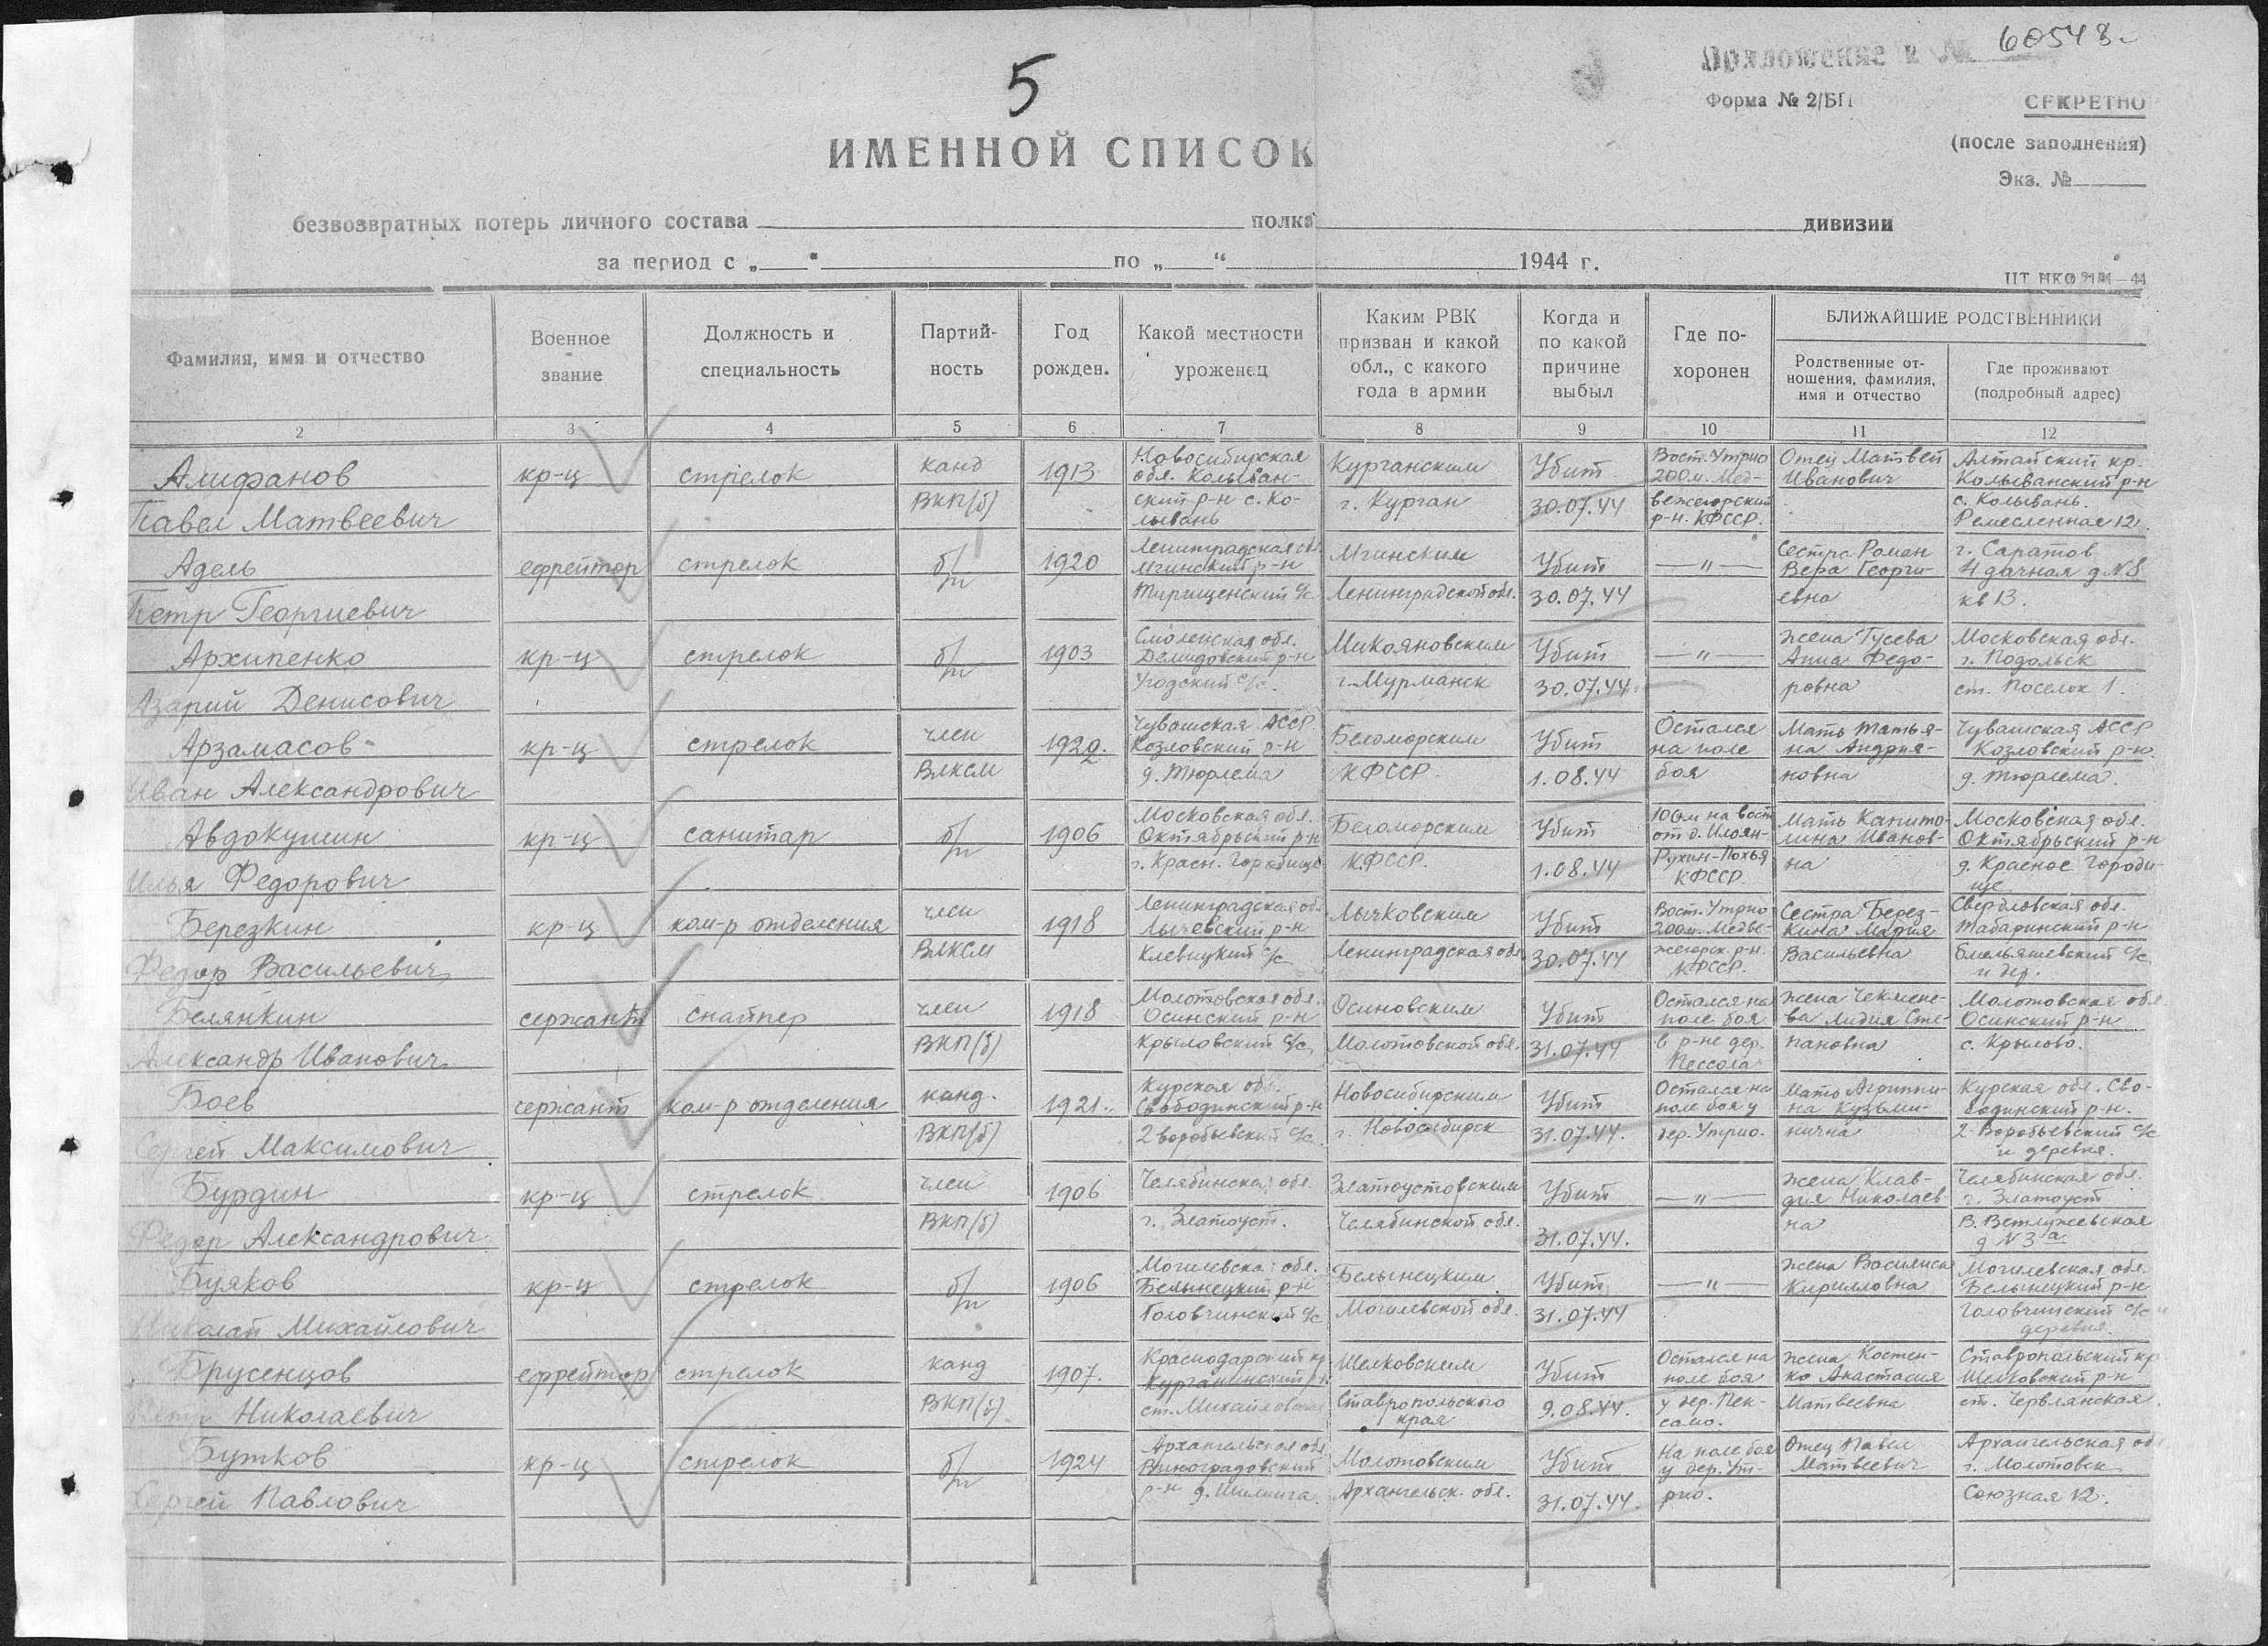 60548
Приложение к №
5
Форма № 2/БП
СЕКРЕТНО
(после заполнения)
Экз. №
ИМЕННОЙ СПИСОК
безвозвратных потерь личного состава полка дивизии
за период с „ “ по „ “ 1944 г.
Фамилия, имя и отчество
Военное звание
Должность и специальность
Партий-
ность
Год рожден.
Какой местности уроженец
Каким РВК
призван и какой
обл., с какого
года в армии
Когда и
по какой
причине
выбыл
Где по-
хоронен
БЛИЖАЙШИЕ РОДСТВЕННИКИ
Родственные от-
ношения, фамилия,
имя и отчество
Где проживают
(подробный адрес)
2 3 4 5 6 7 8 9 10 11 12
Алифанов
Павел Матвеевич
кр-ц
стрелок
канд
ВКП(б)
1913
Новосибирская
обл. Колыван-
ский р-н с. Ко-
лывань
Курганским
г. Курган
Убит
30.07.44
Вост. Утрио
200 м. Мед-
вежегорский
р-н. КФССР.
Отец Матвей
Иванович
Алтайский кр.
Колыванский р-н
с. Колывань.
Ремесленная 12
Адель
Петр Георгиевич
ефрейтор
стрелок
б/п
1920
Ленинградская обл.
Мгинский р-н
с/с
Мгинским
Ленинградской обл.
Убит
30.07.44
— " —
Сестра Роман
Вера Георги-
евна
г. Саратов
4 дачная д N 8
кв 13.
Архипенко
Азарий Денисович
кр-ц
стрелок
б/п
1903
Смоленская обл.
Демидовский р-н
Угодский с/с.
Микояновским
г. Мурманск
Убит
30.07.44
— " —
жена Гусева
Анна Федо-
ровна
Московская обл.
г. Подольск
ст. Поселок 1.
Арзамасов
Иван Александрович
кр-ц
стрелок
член
ВЛКСМ
1922.
Чувашская АССР
Козловский р-н
д. Тюрлема
Беломорским
КФССР.
Убит
1.08.44
Остался
на поле
боя
Мать Татья-
на Андрия-
новна
Чувашская АССР
Козловский р-н.
д. Тюрлема.
Авдокушин
Илья Федорович
кр-ц
санитар
б/п
1906
Московская обл.
Октябрьский р-н
г. Красн. Городище
Беломорским
КФССР.
Убит
1.08.44
100 м на вост
от д.
КФССР.
Мать Капито-
лина Иванов-
на
Московская обл.
Октябрьский р-н
д. Красное Городи-
ще
Березкин
Федор Васильевич
кр-ц
ком-р отделения
член
ВЛКСМ
1918
Ленинградская обл
Лычевский р-н
Клевицкий с/с
Лычковским
Ленинградская обл
Убит
30.07.44
Вост. Утрио
200 м. Медве-
жегорск. р-н.
КФССР.
Сестра Берез-
кина Мария
Васильевна
Свердловская обл.
Табаринский р-н
с/с
и дер.
Белянкин
Александр Иванович
сержант
снайпер
член
ВКП(б)
1918
Молотовская обл.
Осинский р-н
Крыловский с/с
Осиновским
Молотовской обл.
Убит
31.07.44
Остался на
поле боя
в р-не дер.
Пессола
жена Чекмене-
ва Лидия Сте-
пановна
Молотовская обл
Осинский р-н
с. Крылово.
Боев
Сергей Максимович
сержант
ком-р отделения
канд.
ВКП(б)
1921.
Курская обл.
Свободинский р-н
2 воробьевский с/с
Новосибирским
г. Новосибирск
Убит
31.07.44.
Остался на
поле боя у
дер. Утрио.
Мать Агриппи-
на Кузьми-
нична
Курская обл. Сво-
бодинский р-н.
2-Воробьевский с/с
и деревня.
Бурдин
Федор Александрович
кр-ц
стрелок
член
ВКП(б)
1906
Челябинская обл.
г. Златоуст.
Златоустовским
Челябинской обл.
Убит
31.07.44.
— " —
жена Клав-
дия Николаев-
на
Челябинская обл.
г. Златоуст
В. Ветлужевская
д N 3 а.
Буяков
Николай Михайлович
кр-ц
стрелок
б/п
1906
Могилевская обл.
Белынецкий р-н
Головчинский с/с
Белынецким
Могилевской обл.
Убит
31.07.44
— " —
жена Василиса
Кирилловна
Могилевская обл.
Белынецкий р-н
Головчинский с/с и
деревня.
Брусенцов
Петр Николаевич
ефрейтор
стрелок
канд
ВКП(б)
1907.
Краснодарский кр
Курганинский р-н
ст. Михайловская
Шелковским
Ставропольского
края
Убит
9.08.44.
Остался на
поле боя
у дер. Пен-
сало.
жена Костен-
ко Анастасия
Матвеевна
Ставропольский кр
Шелковский р-н
ст. Червлянская.
Бутков
Сергей Павлович
кр-ц
стрелок
б/п
1924
Архангельская обл
Виноградовский
р-н д.
Молотовским
Архангельск. обл.
Убит
31.07.44.
На поле боя
у дер. Ут-
рио.
Отец Павел
Матвеевич
Архангельская обл
г. Молотовск
Союзная 12.